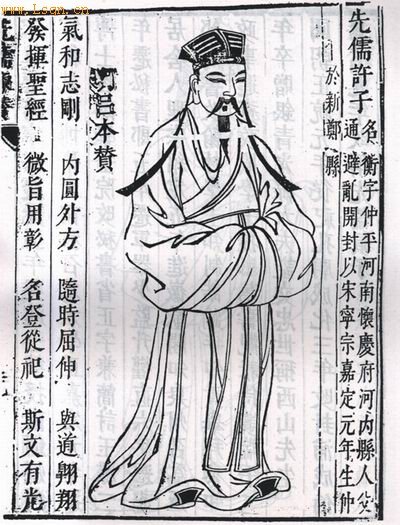 www.Lsqn.cn
先儒許子
名衡字仲平河南懷慶府河內縣人父
通避亂開封以宋寧宗嘉定元年生仲
於新鄭縣
呂本贊
氣和志剛 內圓外方 隨時屈伸 與道翱翔
發揮聖經 微旨用彰 名登從祀 斯文有光